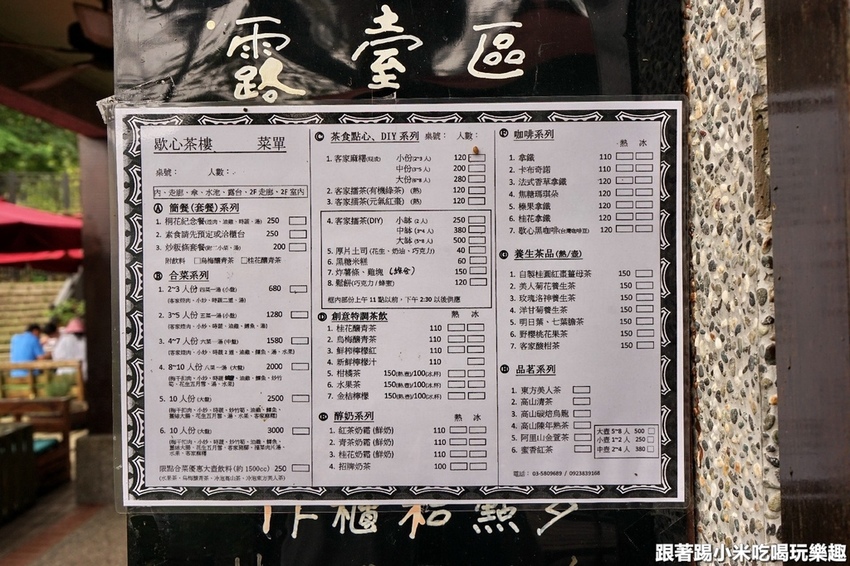 露臺區
歇心茶樓 菜單
桌號： 人數：
內、走廊、傘、水池、露台、2F走廊、2F室內
Ⓐ 簡餐(套餐)系列
1. 桐花紀念餐 250
2. 素食請先預定或洽櫃台 250
3. 炒粄條套餐(附二小菜、湯) 200
附飲料 □烏梅釀青茶 □桂花釀青茶
合菜系列
1. 2~3人份 四菜一湯(小盤) 680
2. 3~5人份 五菜一湯(小盤) 1280
3. 4~7人份 六菜一湯(中盤) 1580
4. 8~10人份 八菜一湯(大盤) 2000
5. 10人份(大盤) 2500
6. 10人份(大盤) 3000
限點合菜優惠大壺飲料(約1500cc) 250
Ⓒ 茶食點心、DIY系列 桌號： 人數：
1. 客家麻糬 小份(2~3人) 120
中份(3~5人) 200
大份(6~8人) 280
2. 客家擂茶(有機綠茶)(熱) 120
3. 客家擂茶(元氣紅棗)(熱) 120
4. 客家擂茶(DIY) 小缽(2人) 250
中缽(3~4人) 380
大缽(5~8人) 500
5. 厚片土司(花生、奶油、巧克力) 40
6. 黑糖米糕 60
7. 炸薯條、雞塊 (綜合) 150
8. 鬆餅(巧克力/蜂蜜) 120
框內部分上午11點以前，下午2:30以後供應
創意特調茶飲 熱 冰
1. 桂花釀青茶 110
2. 烏梅釀青茶 110
3. 鮮榨檸檬紅 110
4. 新鮮檸檬汁 110
5. 柑橘茶 150(熱/壺)/100(冰杯)
6. 水果茶 150(熱/壺)/100(冰杯)
7. 金桔檸檬 150(熱/壺)/100(冰杯)
醇奶系列 熱 冰
1. 紅茶奶霜(鮮奶) 110
2. 青茶奶霜(鮮奶) 110
3. 桂花奶霜(鮮奶) 110
4. 招牌奶茶 100
咖啡系列 熱 冰
1. 拿鐵 110
2. 卡布奇諾 110
3. 法式香草拿鐵 110
4. 焦糖瑪琪朵 110
5. 榛果拿鐵 110
6. 桂花拿鐵 110
7. 歇心黑咖啡(台灣咖啡豆) 120
養生茶品(熱/壺)
1. 自製桂圓紅棗薑母茶 150
2. 美人菊花養生茶 150
3. 玫瑰洛神養生茶 150
4. 洋甘菊養生茶 150
5. 明日葉、七葉膽茶 150
6. 野櫻桃花果茶 150
7. 客家酸柑茶 150
品茗系列
1. 東方美人茶
2. 高山清茶
3. 高山碳焙烏龍
4. 高山陳年熟茶
5. 阿里山金萱茶
6. 蜜香紅茶
大壺5~8人 500
小壺1~2人 250
中壺2~4人 380
電話： 03-5809689 / 0923839168
作櫃和點
跟著踢小米吃喝玩樂趣